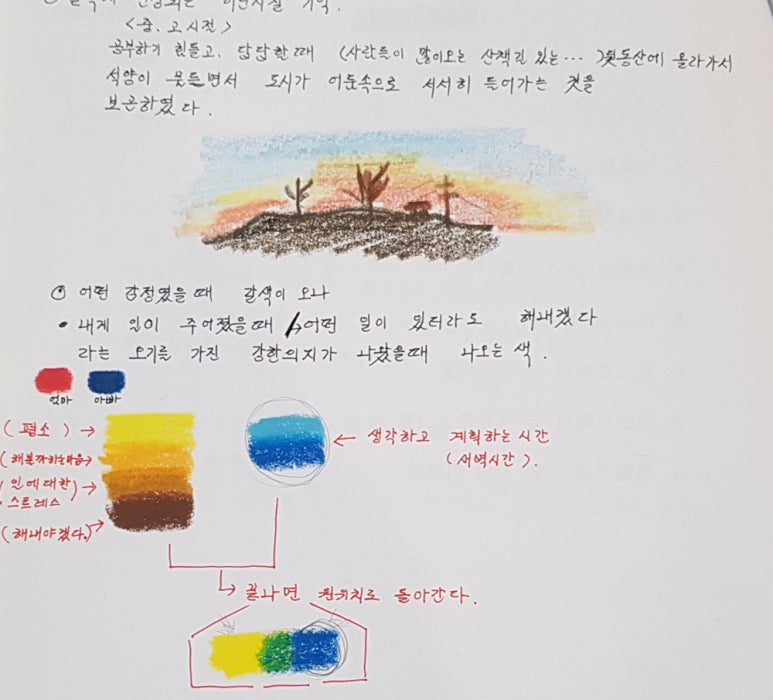 <중, 고시절>
공부하기 힘들고, 답답할때 (사람들이 많이오는 산책길 있는…) 뒷동산에 올라가서
석양이 물들면서 도시가 어둠속으로 서서히 들어가는 것을
보곤하였다.
어떤 감정였을때 갈색이 오나
• 내게 일이 주어졌을때 어떤 일이 있더라도 해내겠다
라는 오기를 가진 강한의지가 나왔을때 나오는 색.
엄마 아빠
(평소) →
(해볼까하는마음) →
(일에대한) →
스트레스
(해내야겠다.) →
← 생각하고 계획하는 시간
(새벽시간).
→ 끝나면 원위치로 돌아간다.